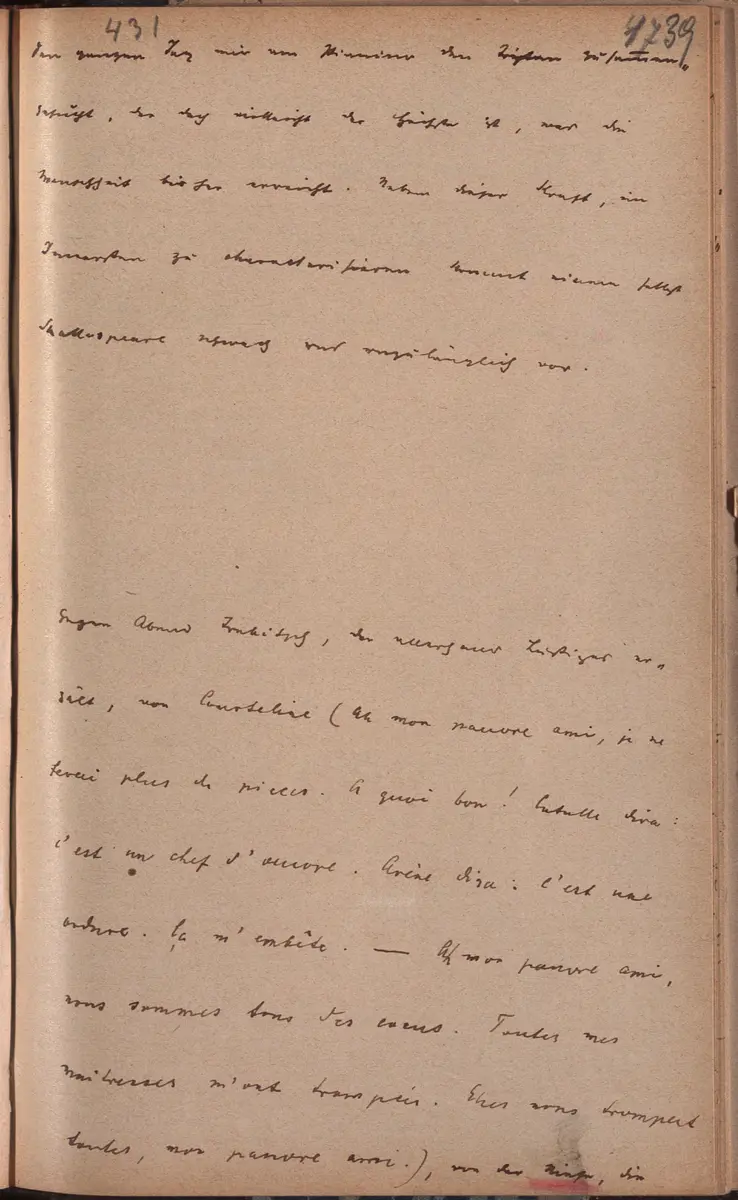 431
1739
den ganzen Tag mir am Pianino den Tristan zusammen-
gesucht, der doch vielleicht das Höchste ist, was die
Menschheit bisher erreicht. Neben dieser Kraft, im
Innersten zu characterisieren kommt einem selbst
Shakespeare schwach und unzulänglich vor.
Abend, der allerhand Lustiges er-
zält, von Courteline (Ah mon pauvre ami, je ne
ferai plus de pièces. A quoi bon! Catulle dira:
c'est un chef d'oeuvre. Arène dira: c'est une
ordure. Ça m'embête. — Ah mon pauvre ami,
nous sommes tous des cocus. Toutes mes
maitresses m'ont trompées. Elles nous trompent
toutes, mon pauvre ami.), von der die